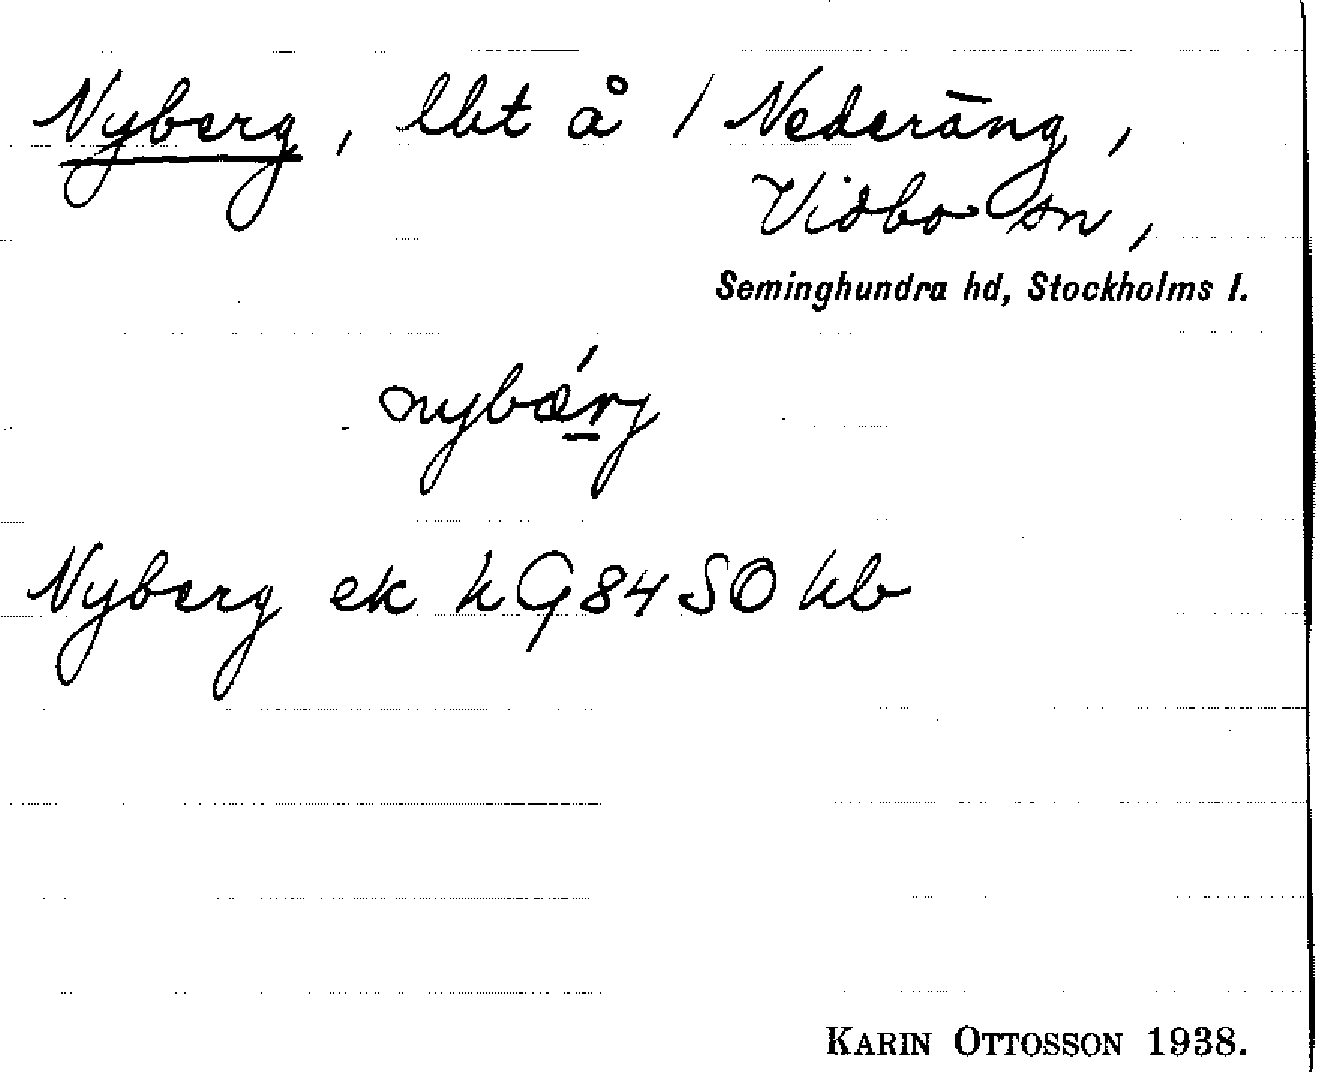 Nyberg, lht å 1 Nederäng,
Vidbo sn,
Seminghundra hd, Stockholms l.
nybærj
Nyberg ek kG84SO hb
KARIN OTTOSSON 1938.